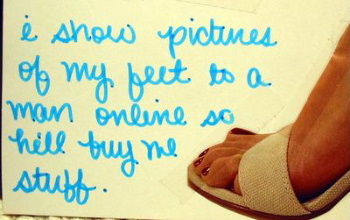 i show pictures
of my feet to a
man online so
he'll buy me
stuff.